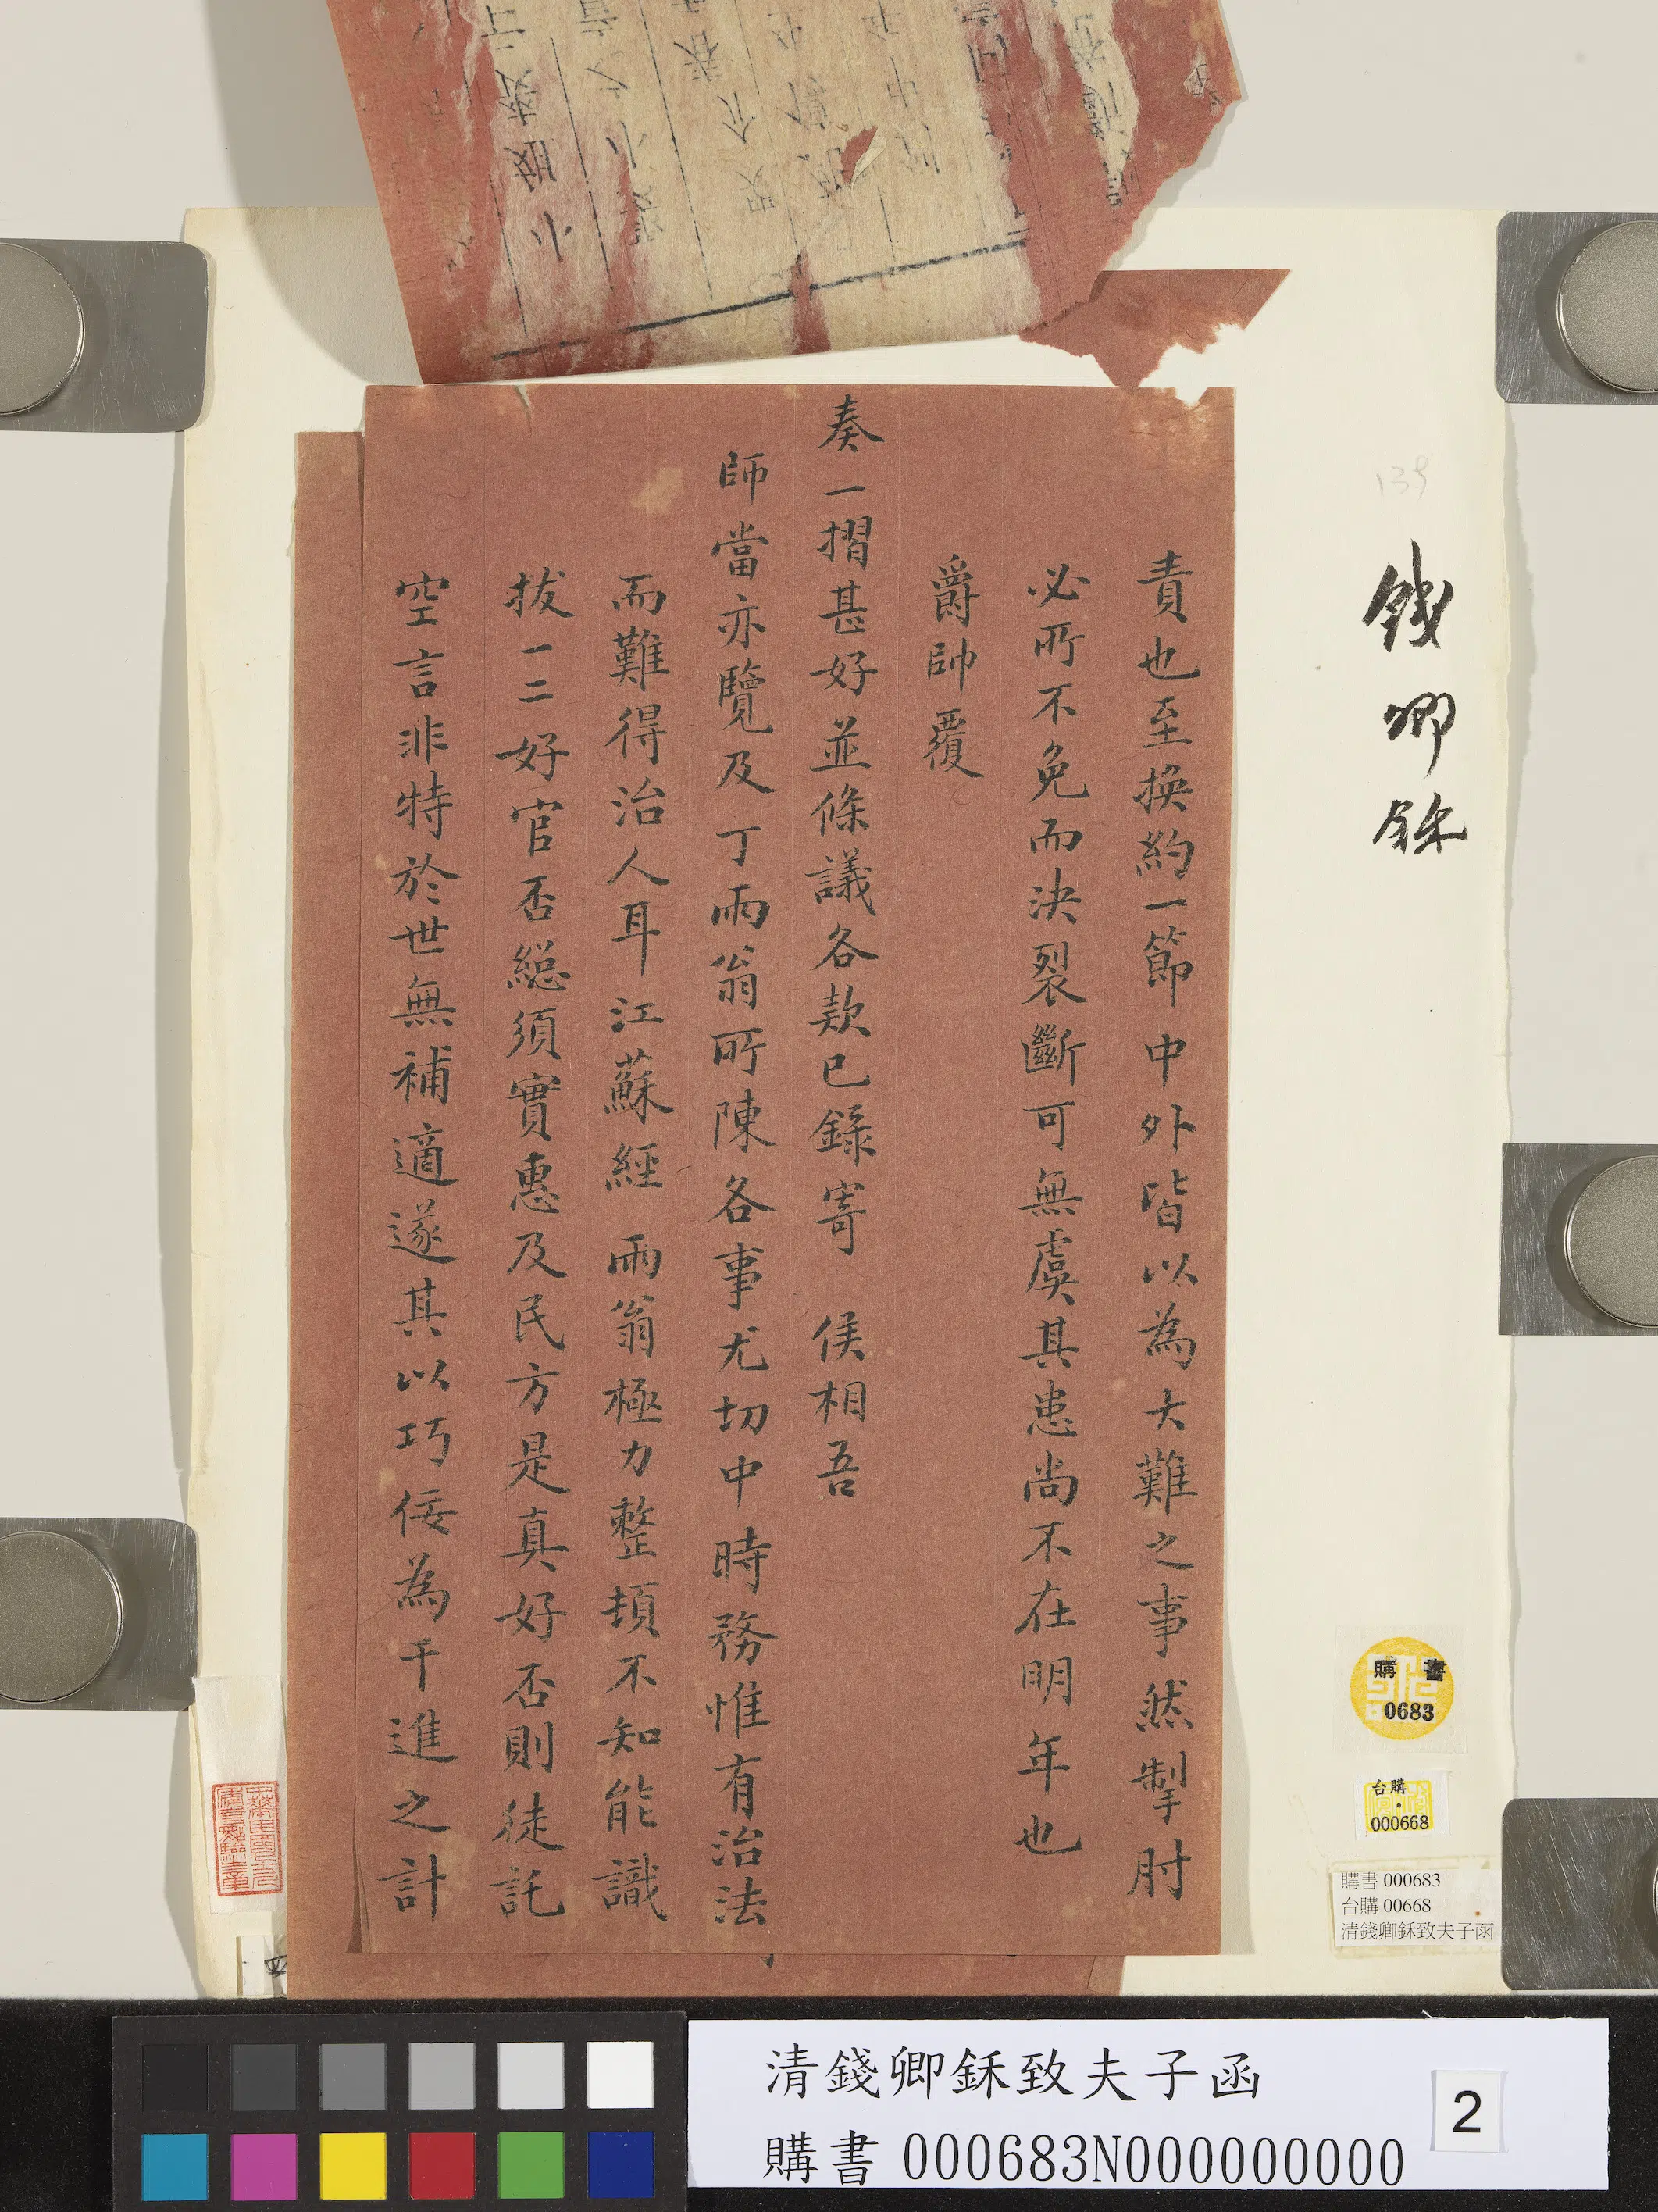 責也至換約一節中外皆以為大難之事然掣肘
必所不免而決裂斷可無虞其患尚不在明年也
爵帥覆
奏一摺甚好並條議各款已錄寄 侯相吾
師當亦覽及丁雨翁所陳各事尤切中時務惟有治法
而難得治人耳江蘇經 雨翁極力整頓不知能識
拔一二好官否總須實惠及民方是真好否則徒託
空言非特於世無補適遂其以巧佞為干進之計
139
錢卿鉌
購書
0683
台購
000668
購書 000683
台購 00668
清錢卿鉌致夫子函
清錢卿鉌致夫子函
購書 000683N000000000
2